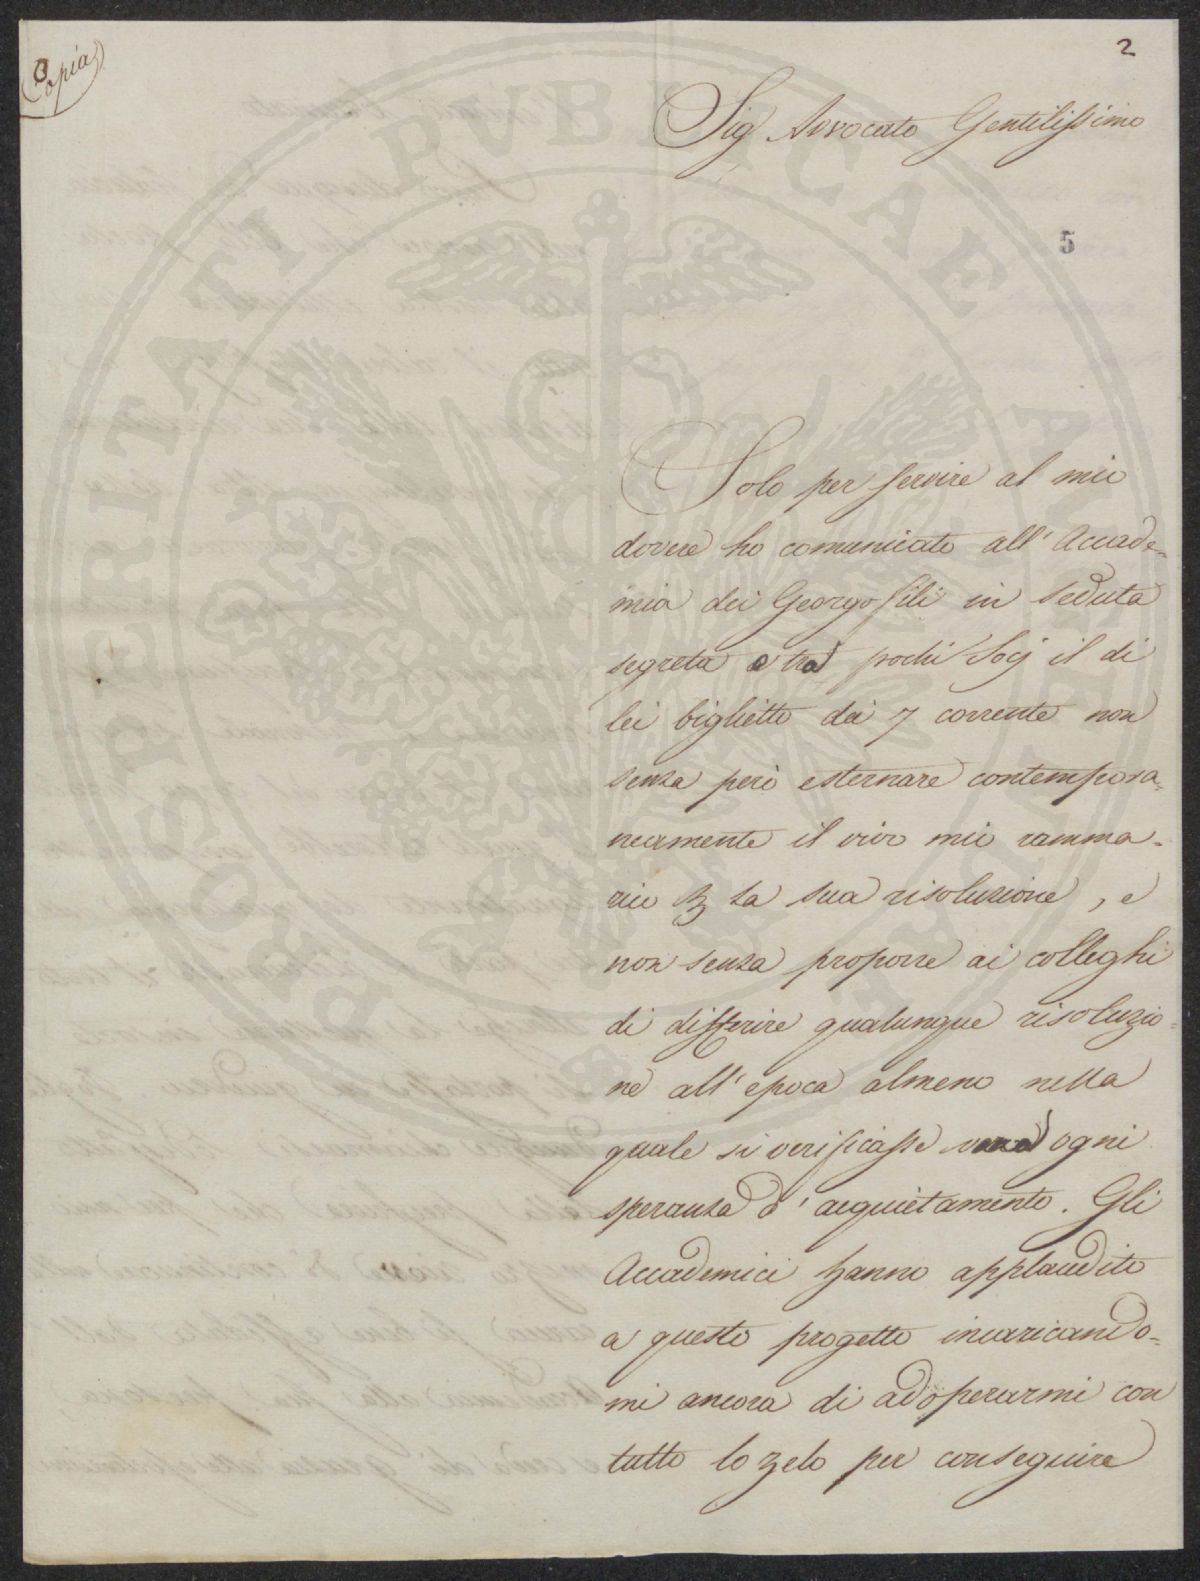 Copia
2
Sig Avvocato Gentilissimo
5
Solo per servire al mio
dovere ho comunicato all' Accade-
mia dei Georgofili in seduta
segreta e tra pochi Socj il di
lei biglietto dei 7 corrente non
senza però esternare contempora-
neamente il vivo mio ramma-
rico la sua risoluzione, e
non senza proporre ai colleghi
di differire qualunque risoluzio-
ne all' epoca almeno nella
quale si verificasse vana ogni
speranza d' acquietamento. Gli
Accademici hanno applaudito
a questo progetto incaricando-
mi ancora di adoperarmi con
tutto lo zelo per conseguire
PROSPERITATI PUBLICAE AUGENDAE